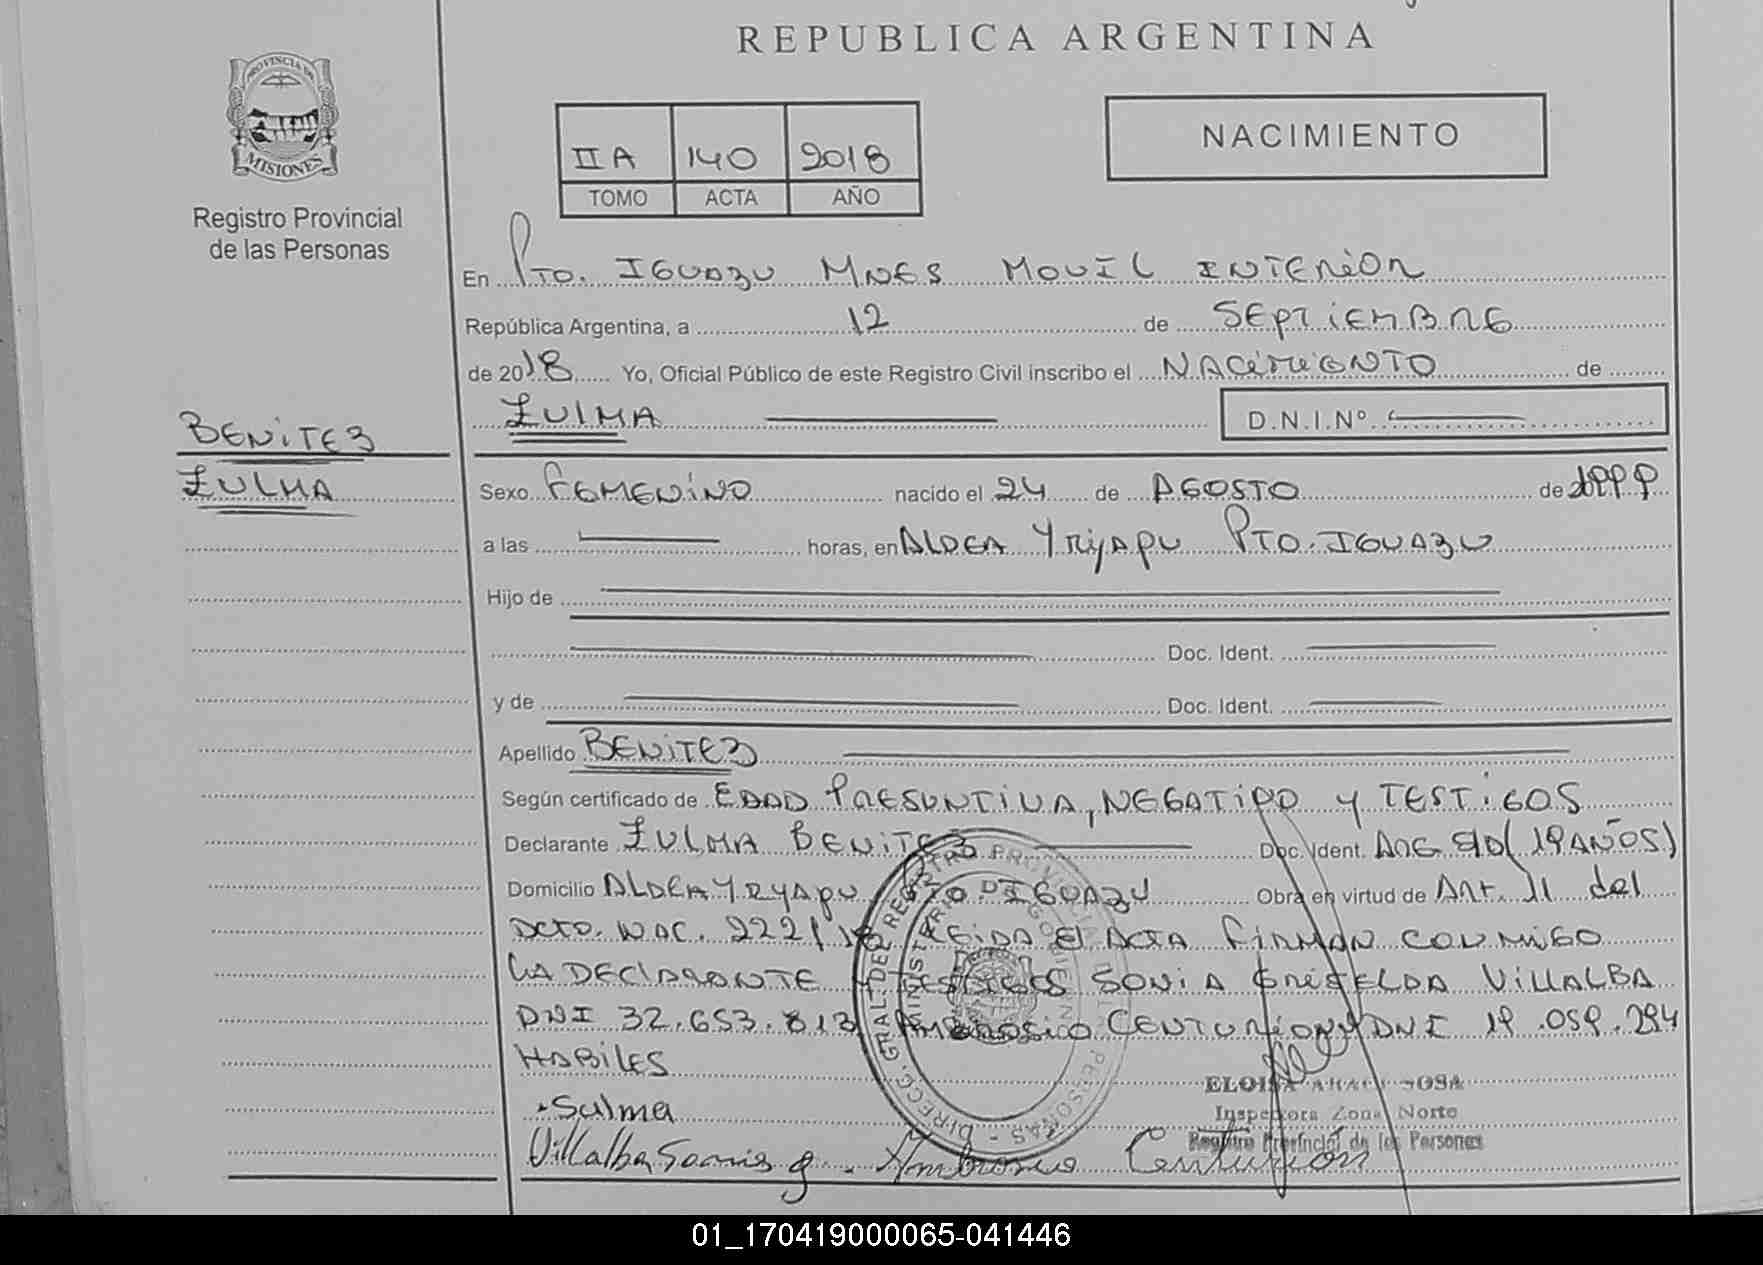 REPUBLICA ARGENTINA
PROVINCIA DE
MISIONES
Registro Provincial
de las Personas
II A 140 2018
TOMO ACTA AÑO
NACIMIENTO
En Pto. IGUAZU MNES MOVIL INTERiOR
República Argentina, a 12 de SEPTiEMBRE
de 2018 Yo, Oficial Público de este Registro Civil inscribo el NACiMiENTO de
ZULMA D.N.I.Nº
BENiTEZ
ZULMA
Sexo FEMENiNO nacido el 24 de AGOSTO de 1999
a las horas, en ALDEA YRyAPU PTO. IGUAZU
Hijo de
Doc. Ident.
y de Doc. Ident.
Apellido BENiTEZ
Según certificado de EDAD PRESUNTIVA, NEGATIVO y TESTiGOS
Declarante ZULMA BENiTEZ Doc. Ident. ARG S/D (19 AÑOS)
Domicilio ALDEA YRYAPU PTO. IGUAZU Obra en virtud de Art. 11 del
DCTO. NAC. 222/ LEiDA El ACTA FiRMAN CONMIGO
LA DECLARANTE Y TESTIGOS SONiA GRISELDA VILLALBA
DNI 32.653.813 AMBROSIO CENTURION DNI 19.059.294
HABiLES
Sulma
Villalba Sonia g. Ambrosio Centurión
ELOISA ARACI SOSA
Inspectora Zona Norte
Registro Provincial de las Personas
01_170419000065-041446